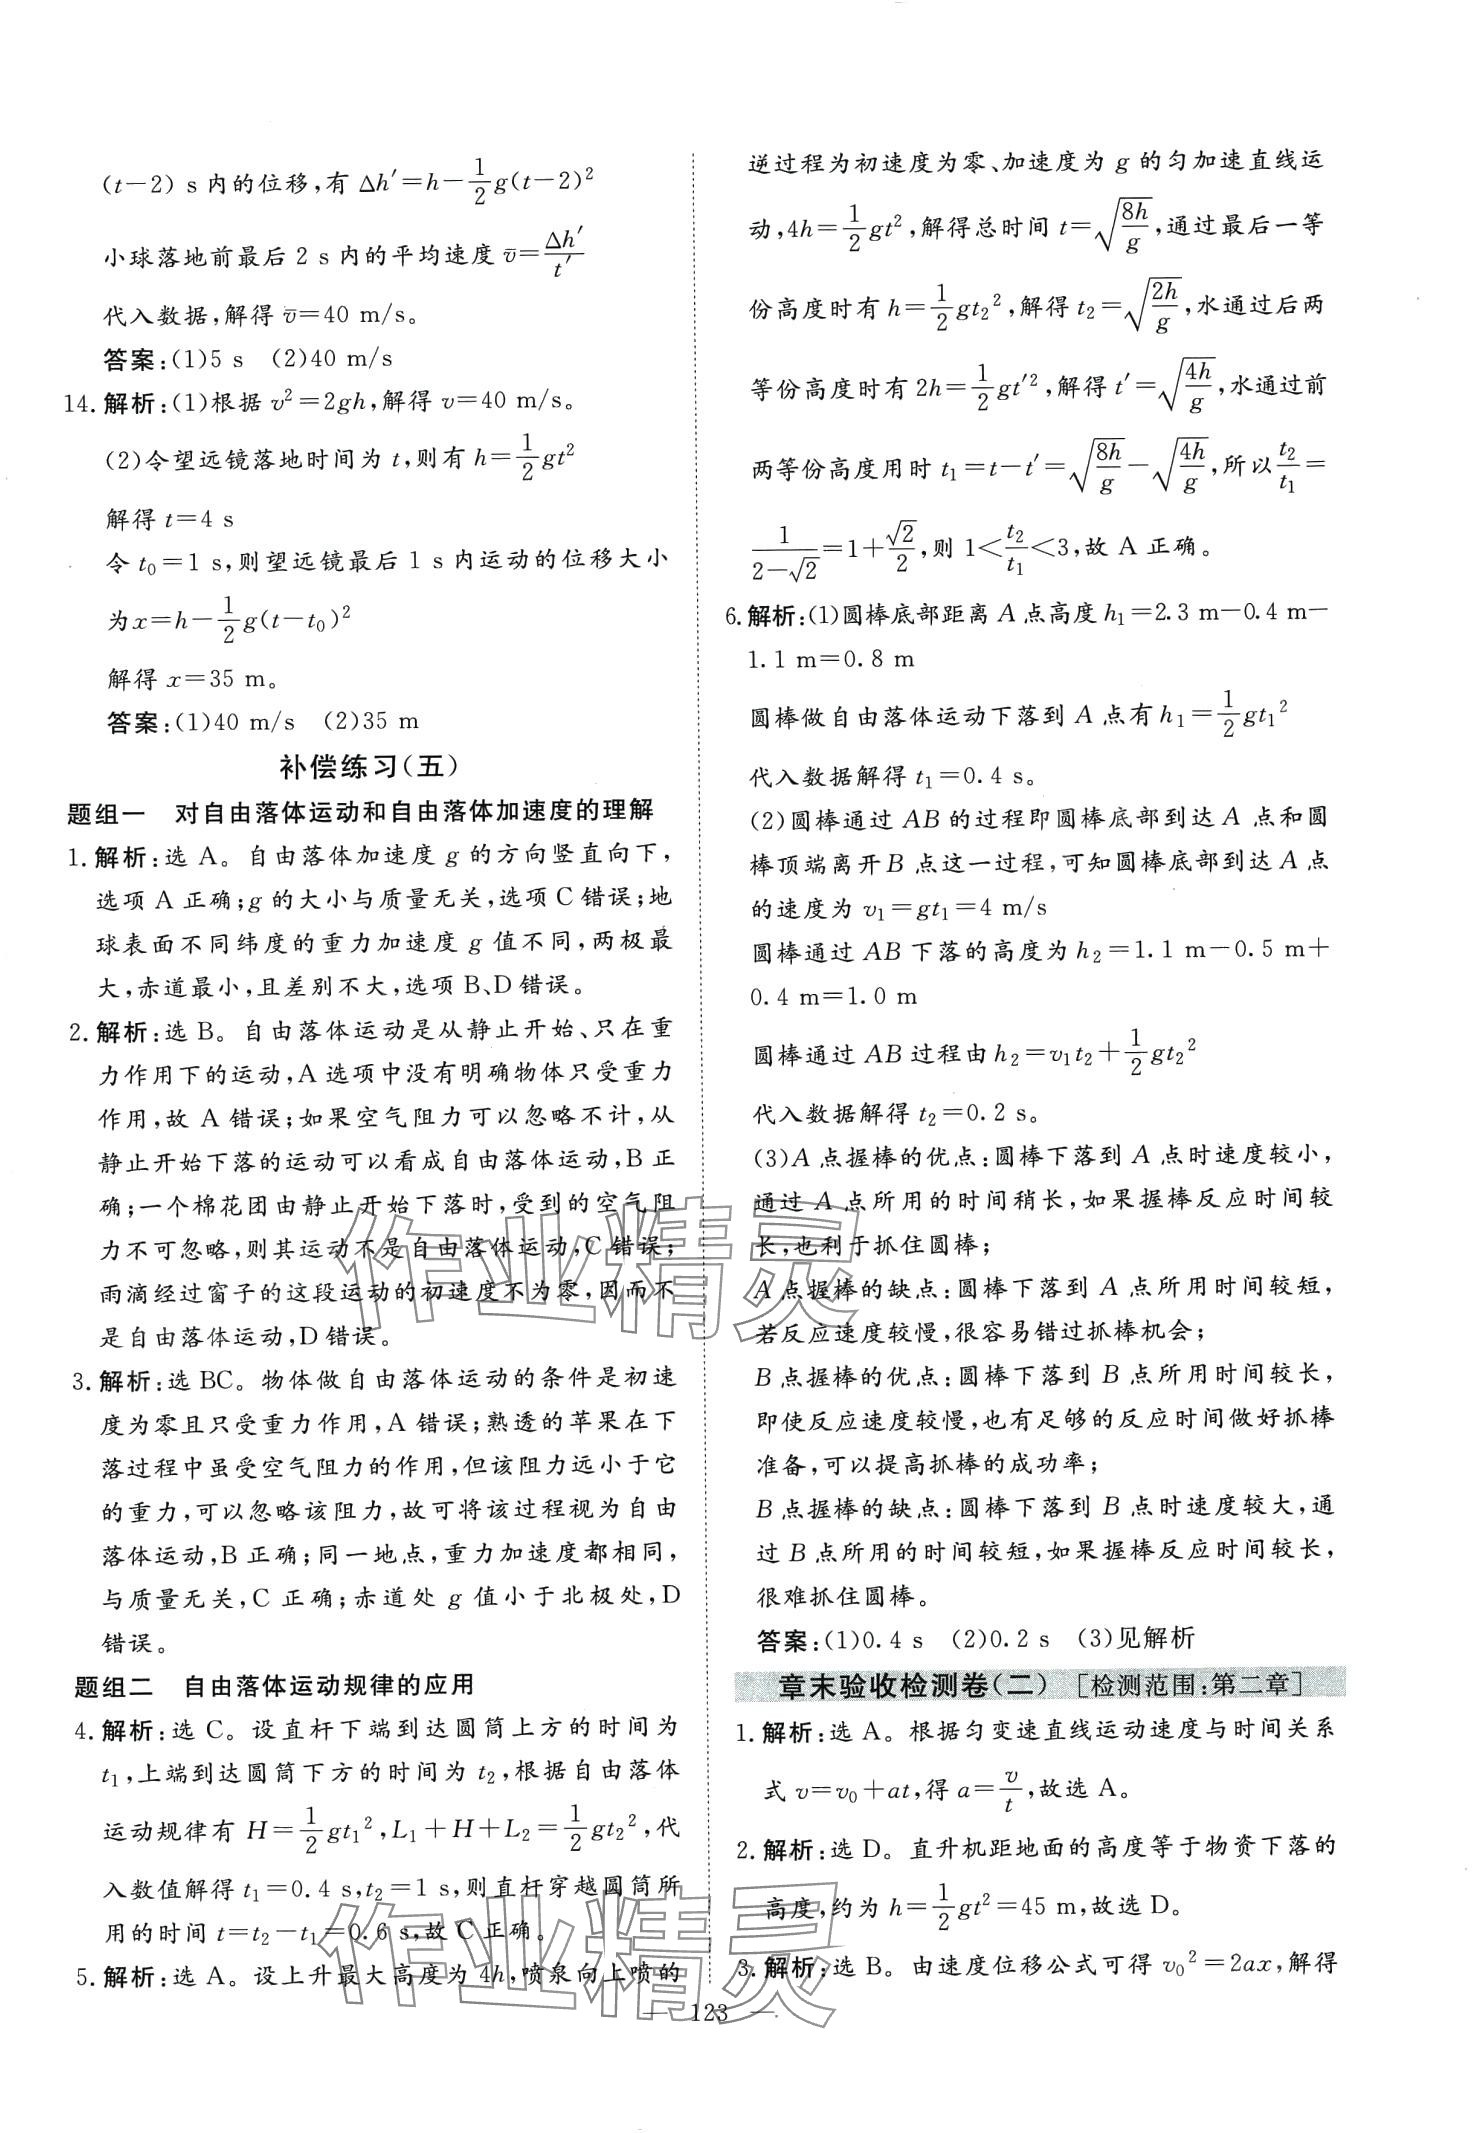 (t−2) s内的位移,有 Δh′=h−1/2g(t−2)²
小球落地前最后 2 s 内的平均速度 v̅=Δh′/t′
代入数据,解得 v̅=40 m/s。
答案:(1)5 s (2)40 m/s
14. 解析:(1)根据 v²=2gh,解得 v=40 m/s。
(2)令望远镜落地时间为 t,则有 h=1/2gt²
解得 t=4 s
令 t₀=1 s,则望远镜最后 1 s 内运动的位移大小
为x=h−1/2g(t−t₀)²
解得 x=35 m。
答案:(1)40 m/s (2)35 m
补偿练习(五)
题组一 对自由落体运动和自由落体加速度的理解
1. 解析:选 A。自由落体加速度 g 的方向竖直向下,
选项 A 正确;g 的大小与质量无关,选项 C 错误;地
球表面不同纬度的重力加速度 g 值不同,两极最
大,赤道最小,且差别不大,选项 B、D 错误。
2. 解析:选 B。自由落体运动是从静止开始、只在重
力作用下的运动,A 选项中没有明确物体只受重力
作用,故 A 错误;如果空气阻力可以忽略不计,从
静止开始下落的运动可以看成自由落体运动,B 正
确;一个棉花团由静止开始下落时,受到的空气阻
力不可忽略,则其运动不是自由落体运动,C 错误;
雨滴经过窗子的这段运动的初速度不为零,因而不
是自由落体运动,D 错误。
3. 解析:选 BC。物体做自由落体运动的条件是初速
度为零且只受重力作用,A 错误;熟透的苹果在下
落过程中虽受空气阻力的作用,但该阻力远小于它
的重力,可以忽略该阻力,故可将该过程视为自由
落体运动,B 正确;同一地点,重力加速度都相同,
与质量无关,C 正确;赤道处 g 值小于北极处,D
错误。
题组二 自由落体运动规律的应用
4. 解析:选 C。设直杆下端到达圆筒上方的时间为
t₁,上端到达圆筒下方的时间为 t₂,根据自由落体
运动规律有 H=1/2gt₁²,L₁+H+L₂=1/2gt₂²,代
入数值解得 t₁=0.4 s,t₂=1 s,则直杆穿越圆筒所
用的时间 t=t₂−t₁=0.6 s,故 C 正确。
5. 解析:选 A。设上升最大高度为 4h,喷泉向上喷的
逆过程为初速度为零、加速度为 g 的匀加速直线运
动,4h=1/2gt²,解得总时间 t=√(8h/g),通过最后一等
份高度时有 h=1/2gt₂²,解得 t₂=√(2h/g),水通过后两
等份高度时有 2h=1/2gt′²,解得 t′=√(4h/g),水通过前
两等份高度用时 t₁=t−t′=√(8h/g)−√(4h/g),所以t₂/t₁=
1/(2−√2)=1+√2/2,则 1<t₂/t₁<3,故 A 正确。
6. 解析:(1)圆棒底部距离 A 点高度 h₁=2.3 m−0.4 m−
1.1 m=0.8 m
圆棒做自由落体运动下落到 A 点有 h₁=1/2gt₁²
代入数据解得 t₁=0.4 s。
(2)圆棒通过 AB 的过程即圆棒底部到达 A 点和圆
棒顶端离开 B 点这一过程,可知圆棒底部到达 A 点
的速度为 v₁=gt₁=4 m/s
圆棒通过 AB 下落的高度为 h₂=1.1 m−0.5 m+
0.4 m=1.0 m
圆棒通过 AB 过程由 h₂=v₁t₂+1/2gt₂²
代入数据解得 t₂=0.2 s。
(3)A 点握棒的优点:圆棒下落到 A 点时速度较小,
通过 A 点所用的时间稍长,如果握棒反应时间较
长,也利于抓住圆棒;
A 点握棒的缺点:圆棒下落到 A 点所用时间较短,
若反应速度较慢,很容易错过抓棒机会;
B 点握棒的优点:圆棒下落到 B 点所用时间较长,
即使反应速度较慢,也有足够的反应时间做好抓棒
准备,可以提高抓棒的成功率;
B 点握棒的缺点:圆棒下落到 B 点时速度较大,通
过 B 点所用的时间较短,如果握棒反应时间较长,
很难抓住圆棒。
答案:(1)0.4 s (2)0.2 s (3)见解析
章末验收检测卷(二) [检测范围:第二章]
1. 解析:选 A。根据匀变速直线运动速度与时间关系
式 v=v₀+at,得 a=v/t,故选 A。
2. 解析:选 D。直升机距地面的高度等于物资下落的
高度,约为 h=1/2gt²=45 m,故选 D。
3. 解析:选 B。由速度位移公式可得 v₀²=2ax,解得
— 123 —
作业精灵
作业精灵